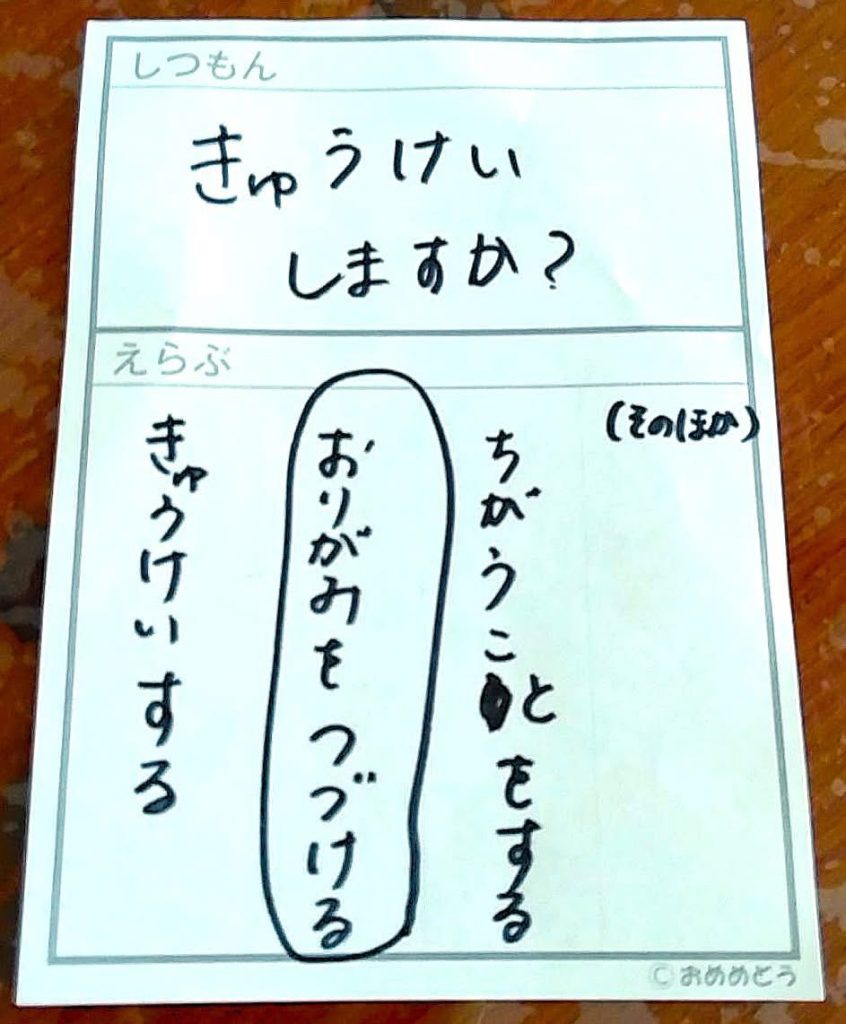 しつもん
きゅうけい
しますか?
えらぶ
きゅうけいする
おりがみをつづける
ちがうことをする
(そのほか)
©おめめどう